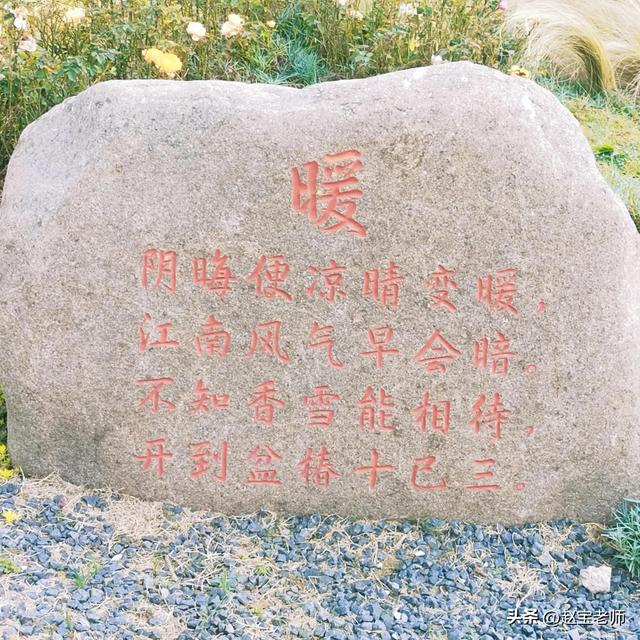 暖
阴晦便凉晴变暖，
江南风气早会暗。
不知香雪能相待，
开到盆椿十已三。
头条 @赵宝老师